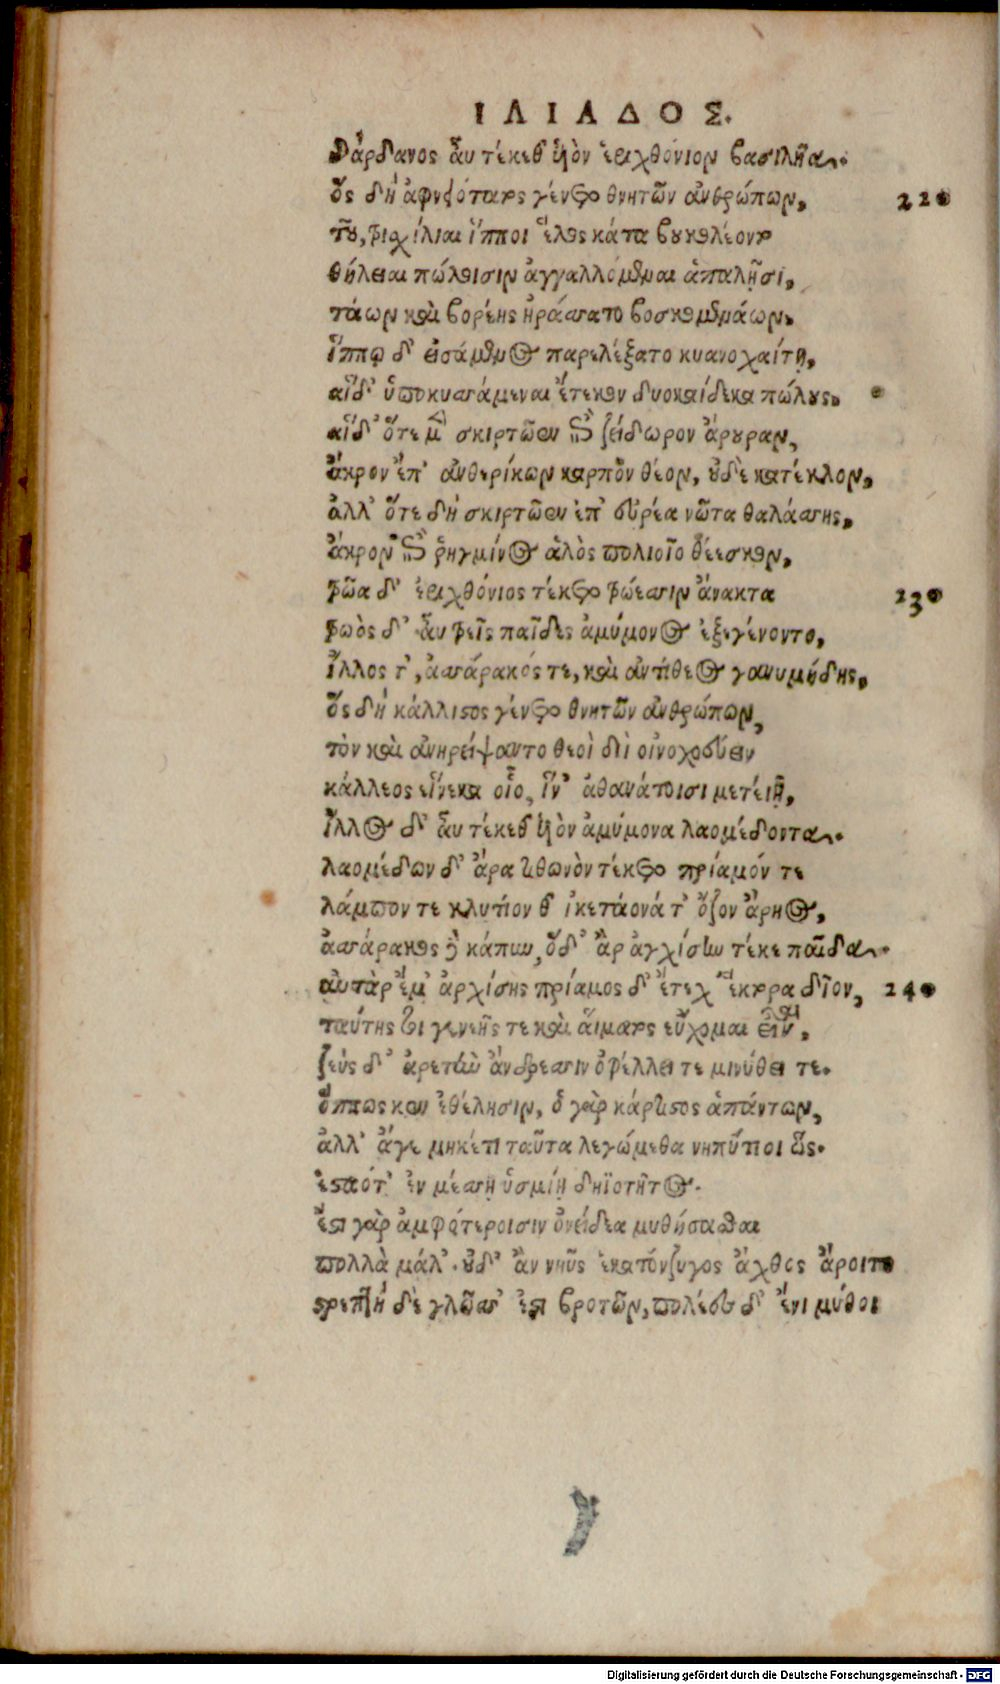 ΙΛΙΑΔΟΣ.
Δάρδανος αὖ τέκεθ' ὑὸν ἐριχθόνιον βασιλῆα.
ὃς δὴ ἀφνειότατος γένετο θνητῶν ἀνθρώπων, 220
τοῦ, τρισχίλιαι ἵπποι ἕλος κάτα βουκολέοντο
θήλειαι πώλοισιν ἀγαλλόμεναι ἀταλῇσι,
τάων καὶ βορέης ἠράσσατο βοσκομενάων.
ἵππῳ δ' εἰσάμενος παρελέξατο κυανοχαίτῃ,
αἵδ' ὑποκυσσάμεναι ἔτεκον δυοκαίδεκα πώλους.
αἵδ' ὅτε μὲν σκιρτῷεν ἐπὶ ζείδωρον ἄρουραν,
ἄκρον ἐπ' ἀνθερίκων καρπὸν θέον, οὐδὲ κατέκλον,
ἀλλ' ὅτε δὴ σκιρτῷεν ἐπ' εὐρέα νῶτα θαλάσσης,
ἄκρον ἐπὶ ῥηγμῖνος ἁλὸς πολιοῖο θέεσκον,
τρῶα δ' ἐριχθόνιος τέκετο τρώεσσιν ἄνακτα 230
τρωὸς δ' αὖ τρεῖς παῖδες ἀμύμονος ἐξεγένοντο,
ἶλλος τ', ἀσσάρακός τε, καὶ ἀντίθεος γανυμήδης,
ὃς δὴ κάλλιστος γένετο θνητῶν ἀνθρώπων,
τὸν καὶ ἀνηρείψαντο θεοὶ διὶ οἰνοχοεύειν
κάλλεος εἵνεκα οἷο, ἵν' ἀθανάτοισι μετείη,
ἶλλος δ' αὖ τέκεθ' ὑὸν ἀμύμονα λαομέδοντα.
λαομέδων δ' ἄρα τιθωνὸν τέκετο πρίαμόν τε
λάμπον τε κλυτίον θ' ἱκετάονά τ' ὄζον ἄρηος,
ἀσσάρακος δὲ κάπυν, ὃδ' ἂρ ἀγχίσην τέκε παῖδα.
αὐτὰρ ἔμ' ἀρχίσης πρίαμος δ' ἔτεχ' ἕκτορα δῖον, 240
ταύτης τοι γενεῆς τε καὶ αἵματος εὔχομαι εἶναι.
ζεὺς δ' ἀρετὴν ἄνδρεσσιν ὀφέλλει τε μινύθει τε.
ὅππως κεν ἐθέλησιν, ὃ γὰρ κάρτιστος ἁπάντων,
ἀλλ' ἄγε μηκέτι ταῦτα λεγώμεθα νηπύτιοι ὣς.
ἑσταότ' ἐν μέσσῃ ὑσμίνῃ δηϊοτῆτος.
ἔστι γὰρ ἀμφοτέροισιν ὀνείδεα μυθήσασθαι
πολλὰ μάλ'. οὐδ' ἂν νηῦς ἑκατόνζυγος ἄχθος ἄροιτο
στρεπτὴ δὲ γλῶσσ' ἐστὶ βροτῶν, πολέες δ' ἔνι μῦθοι
Digitalisierung gefördert durch die Deutsche Forschungsgemeinschaft - DFG